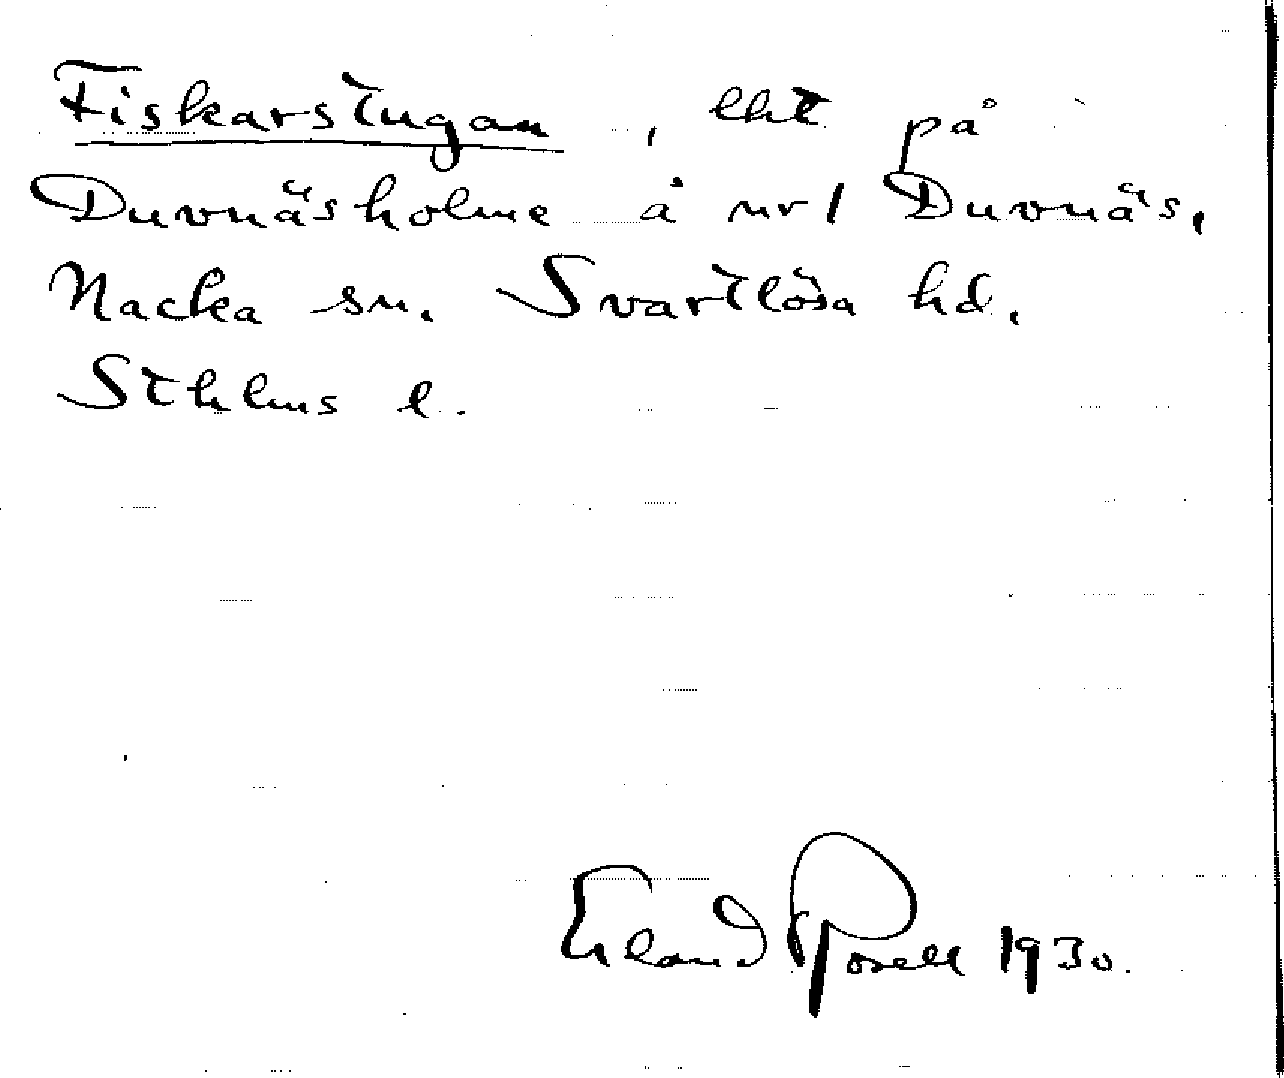 Fiskarstugan, lht på
Duvnäsholme å nr 1 Duvnäs,
Nacka sn. Svartlösa hd.
Sthlms l.
Erland Rosell 1930.